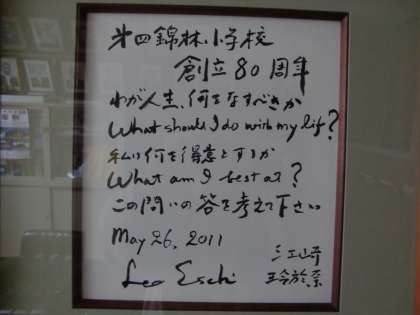 第四錦林小学校
創立80周年
わが人生、何をなすべきか
What should I do with my life?
私は何を得意とするか
What am I best at?
この問いの答を考えて下さい
May 26, 2011
江崎
Leo Esaki
玲於奈